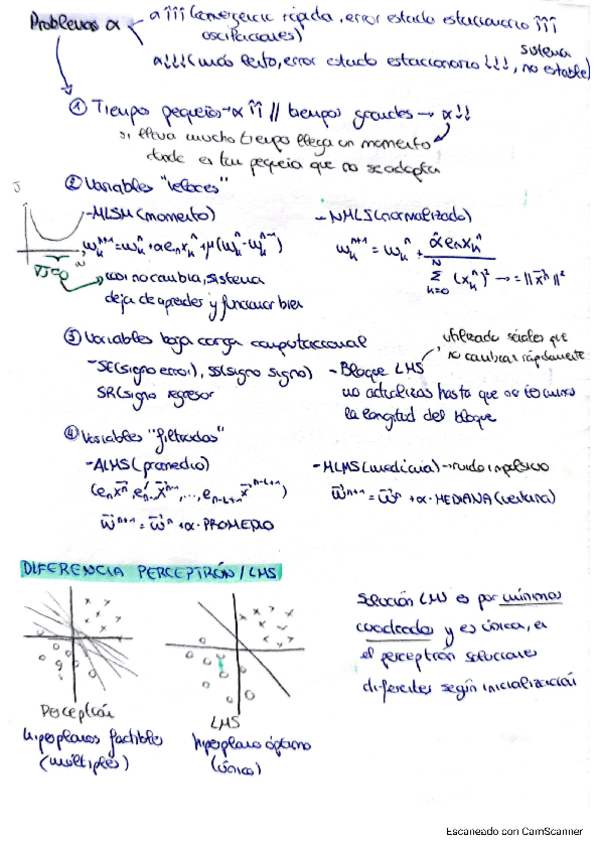 Problemas α
α↑↑↑ (convergencia rápida, error estado estacionario ↑↑↑
oscilaciones)
α↓↓↓ (más lento, error estado estacionario ↓↓↓, sistema
no estable)
① Tiempos pequeños → α↑↑ // tiempos grandes → α↓↓
si lleva mucho tiempo llega un momento
donde es tan pequeña que no se adapta
② Variables "veloces"
- MLSM (momento)
- NMLS (normalizado)
J
w
w_k^{n+1} = w_k^n + α e_n x_k^n + μ(w_k^n - w_k^{n-1})
w_k^{n+1} = w_k^n + \hat{α} e_n x_k^n / \sum_{k=0}^{N} (x_k^n)^2 → = ||\vec{x}^n||^2
∇J=0
casi no cambia, sistema
deja de aprender y funcionar bien
③ Variables baja carga computacional
utilizado señales que
no cambian rápidamente
- SE (signo error), SS (signo signo)
SR (signo regresor
- Bloque LMS
no actualizas hasta que no
la longitud del bloque
④ Variables "filtradas"
- ALMS (promedio)
- MLMS (mediana) → ruido impulsivo
(e_n \vec{x}^n, e_{n-1} \vec{x}^{n-1}, ..., e_{n-L+1} \vec{x}^{n-L+1})
\vec{w}^{n+1} = \vec{w}^n + α · MEDIANA (ventana)
\vec{w}^{n+1} = \vec{w}^n + α · PROMEDIO
DIFERENCIA PERCEPTRÓN / LMS
Solución LMS es por mínimos
cuadrados y es única, en
el perceptrón soluciones
diferentes según inicialización
Perceptrón
hiperplanos factibles
(múltiples)
LMS
hiperplano óptimo
(único)
Escaneado con CamScanner